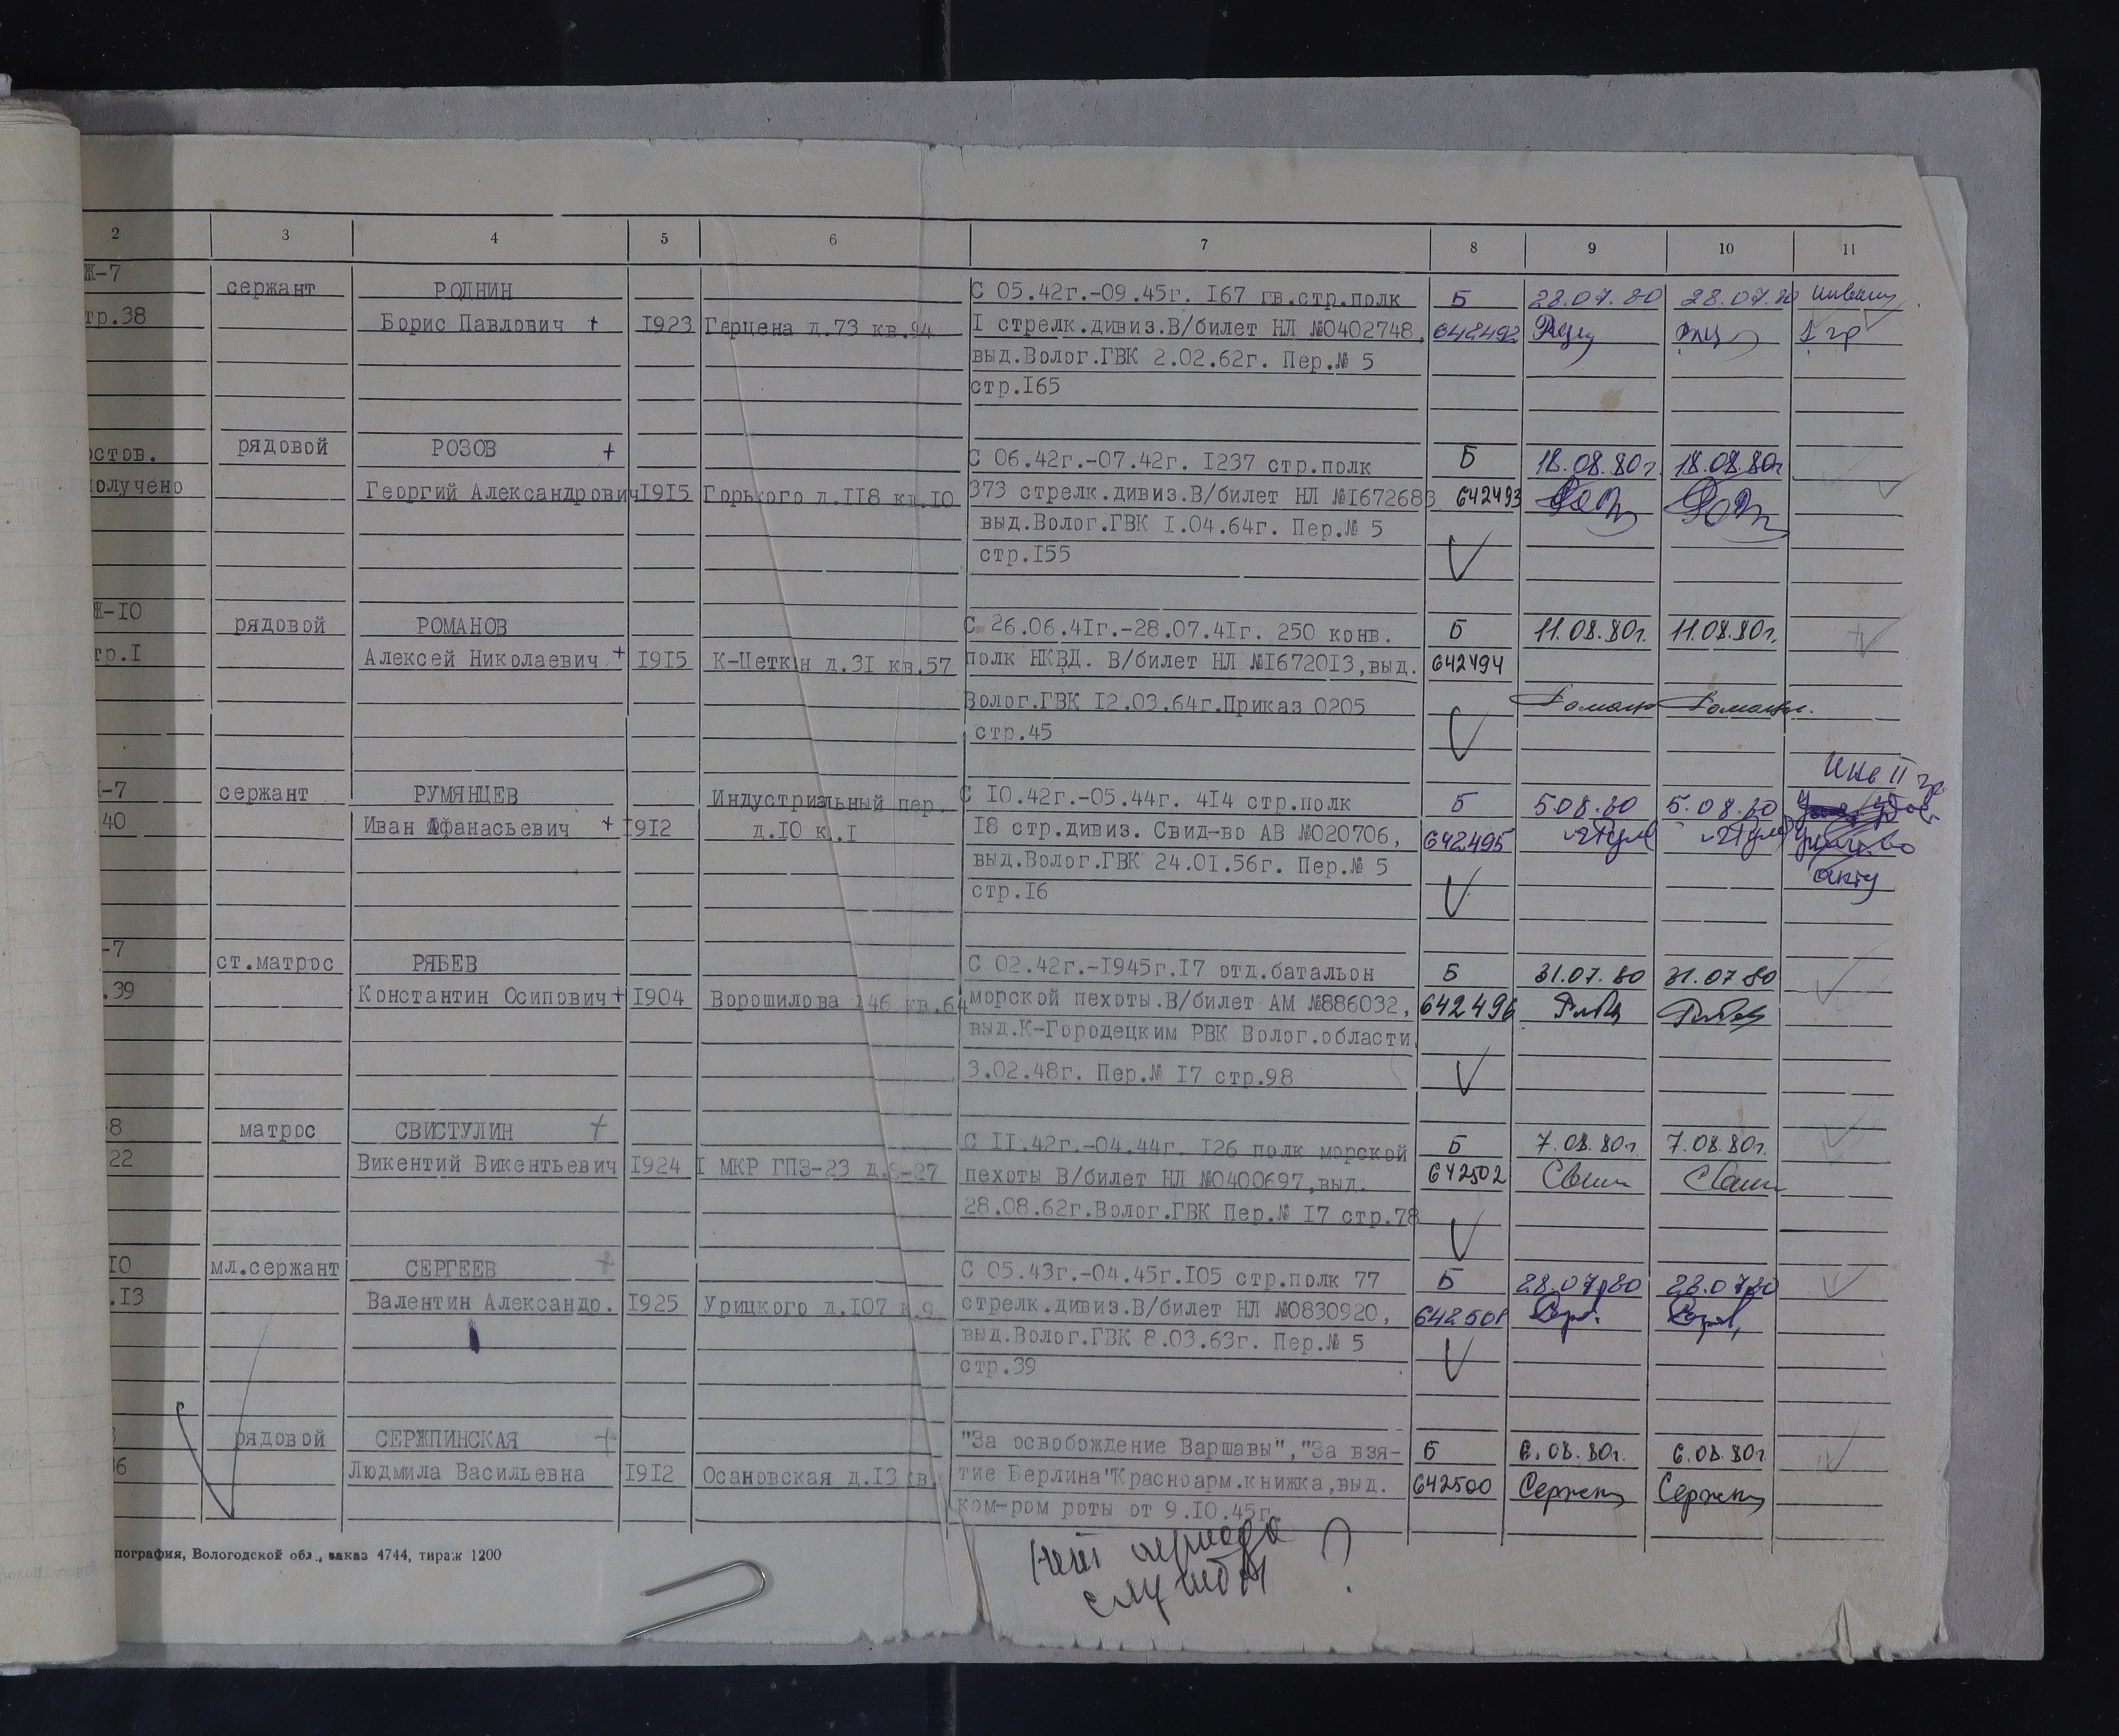 2 3 4 5 6 7 8 9 10 11
Ж-7 сержант РОДНИН С 05.42г.-09.45г. I67 гв.стр.полк Б 28.07.80 28.07.80
тр.38 Борис Павлович + I923 Герцена д.73 кв.94 I стрелк.дивиз.В/билет НЛ №0402748, 642492 1 гр
выд.Волог.ГВК 2.02.62г. Пер.№ 5
стр.I65
остов. рядовой РОЗОВ + С 06.42г.-07.42г. I237 стр.полк Б 18.08.80г. 18.08.80г
олучено Георгий Александрович I9I5 Горького д.II8 кв.I0 373 стрелк.дивиз.В/билет НЛ №I672683 642493
выд.Волог.ГВК I.04.64г. Пер.№ 5
стр.I55
Ж-I0 рядовой РОМАНОВ С 26.06.4Iг.-28.07.4Iг. 250 конв. Б 11.08.80г. 11.08.80г.
тр.I Алексей Николаевич + I9I5 К-Цеткин д.3I кв.57 полк НКВД. В/билет НЛ №I6720I3,выд. 642494
Волог.ГВК I2.03.64г.Приказ 0205
стр.45
инв II гр
-7 сержант РУМЯНЦЕВ Индустриальный пер. С I0.42г.-05.44г. 4I4 стр.полк Б 5.08.80 5.08.80
40 Иван Афанасьевич + I9I2 д.I0 к.I I8 стр.дивиз. Свид-во АВ №020706, 642495
выд.Волог.ГВК 24.0I.56г. Пер.№ 5 акту
стр.I6
-7 ст.матрос РЯБЕВ С 02.42г.-I945г.I7 отд.батальон Б 31.07.80 31.07.80
.39 Константин Осипович + I904 Ворошилова I46 кв.64 морской пехоты.В/билет АМ №886032, 642496
выд.К-Городецким РВК Волог.области
3.02.48г. Пер.№ I7 стр.98
8 матрос СВИСТУЛИН + С II.42г.-04.44г. I26 полк морской Б 7.08.80г. 7.08.80г.
22 Викентий Викентьевич I924 I МКР ГПЗ-23 д.8-27 пехоты В/билет НЛ №0400697,выд. 642502
28.08.62г.Волог.ГВК Пер.№ I7 стр.78
I0 мл.сержант СЕРГЕЕВ + С 05.43г.-04.45г.I05 стр.полк 77 Б 28.07.80 28.07.80
.I3 Валентин Александр. I925 Урицкого д.I07 стрелк.дивиз.В/билет НЛ №0830920, 642501
выд.Волог.ГВК 8.03.63г. Пер.№ 5
стр.39
рядовой СЕРЖПИНСКАЯ + "За освобождение Варшавы","За взя- Б 6.08.80г. 6.08.80г.
36 Людмила Васильевна I9I2 Осановская д.I3 кв. тие Берлина"Красноарм.книжка,выд. 642500
ком-ром роты от 9.I0.45г.
пография, Вологодской обл., заказ 4744, тираж 1200
Нет периода ?
службы